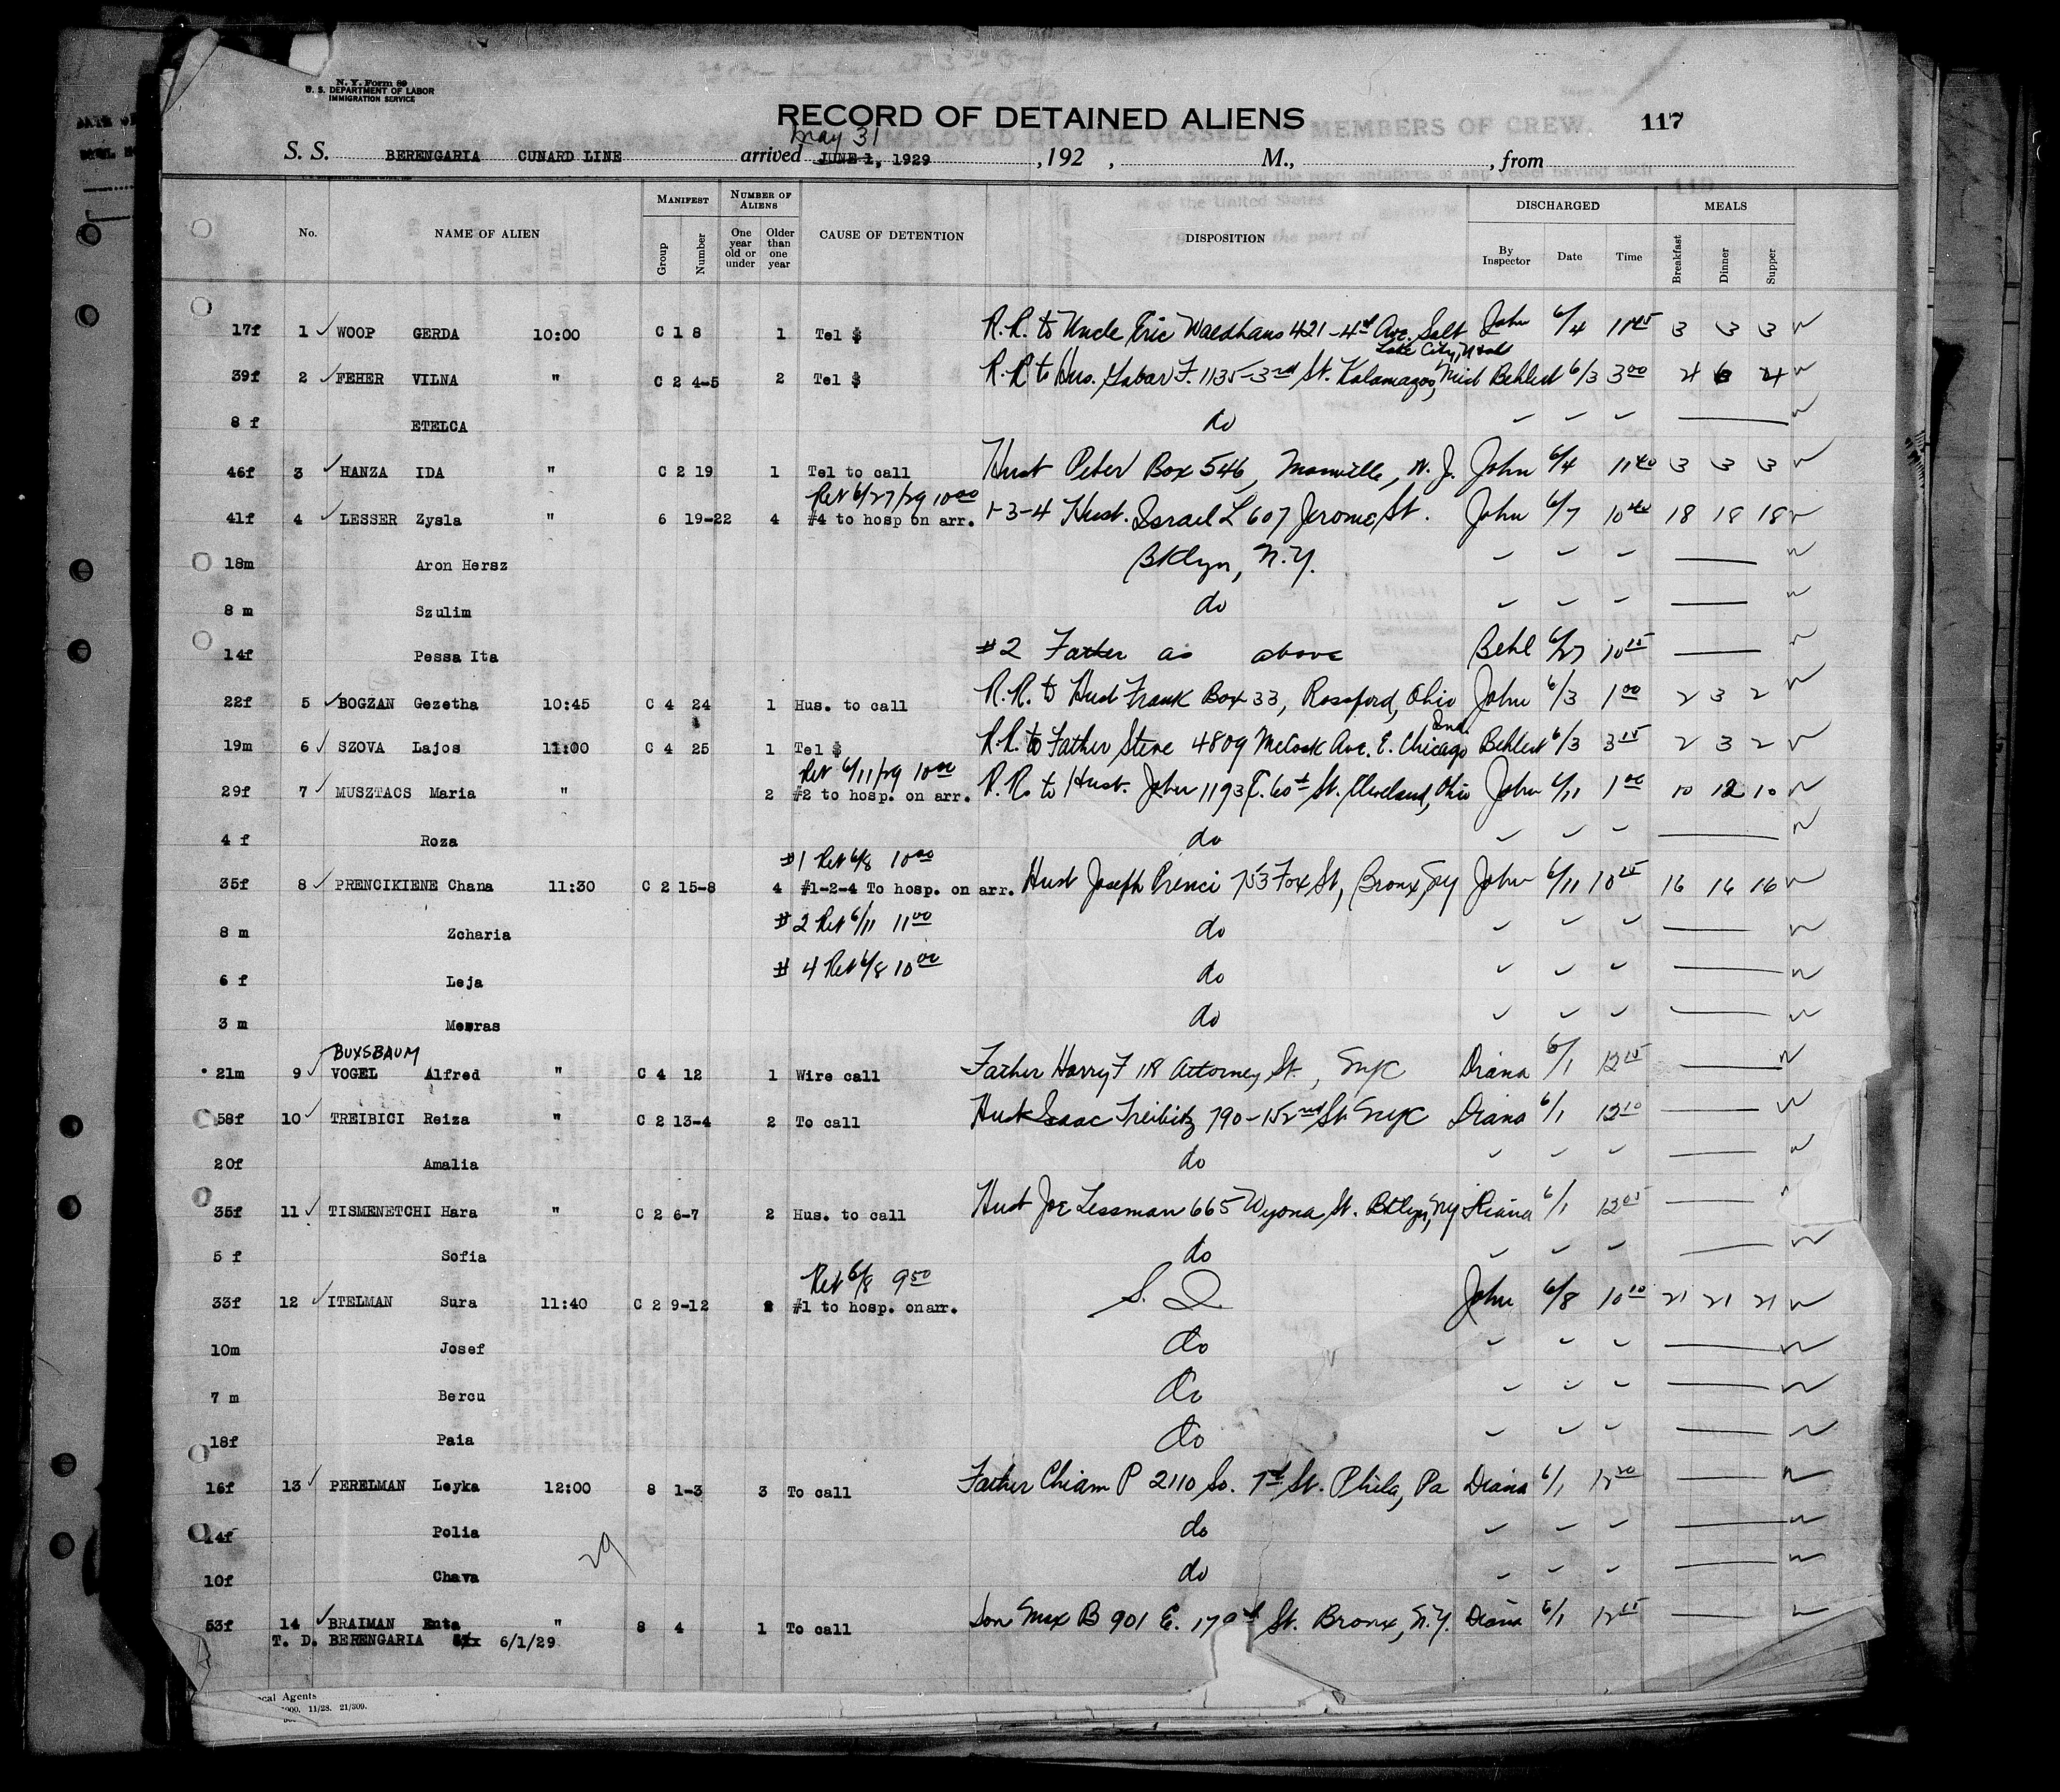 N. Y. Form 89
U. S. DEPARTMENT OF LABOR
IMMIGRATION SERVICE
RECORD OF DETAINED ALIENS 117
May 31
S. S. BERENGARIA CUNARD LINE arrived JUNE 1, 1929 , 192 , M., , from
MANIFEST NUMBER OF ALIENS DISCHARGED MEALS
No. NAME OF ALIEN Group Number One year old or under Older than one year CAUSE OF DETENTION DISPOSITION By Inspector Date Time Breakfast Dinner Supper
17f 1 ✓ WOOP GERDA 10:00 C 1 8 1 Tel $ R.R. to Uncle Eric Waldhans 421-4th Ave. Salt John 6/4 11 45 3 3 3
Lake City, Utah
39f 2 ✓ FEHER VILNA " C 2 4-5 2 Tel $ R.R to Hus. Gabar F. 1135-3rd St. Kalamazoo, Mich Behlert 6/3 3 00 4 6 4
8 f ETELCA do
46f 3 ✓ HANZA IDA " C 2 19 1 Tel to call Husb Peter Box 546, Manville, N. J. John 6/4 11 40 3 3 3
Ret 6/27/29 10 00
41f 4 ✓ LESSER Zysla " 6 19-22 4 #4 to hosp on arr. 1-3-4 Husb. Israel L 607 Jerome St. John 6/7 10 40 18 18 18
18m Aron Hersz Bklyn, N.Y.
8 m Szulim do
14f Pessa Ita #2 Father as above Behl 6/27 10 15
22f 5 ✓ BOGZAN Gezetha 10:45 C 4 24 1 Hus. to call R.R. to Husb Frank Box 33, Rossford, Ohio John 6/3 1 00 2 3 2
Ind.
19m 6 ✓ SZOVA Lajos 11:00 C 4 25 1 Tel $ R.R. to Father Steve 4809 McCook Ave. E. Chicago Behlert 6/3 3 15 2 3 2
Ret 6/11/29 10 00
29f 7 ✓ MUSZTACS Maria " 2 #2 to hosp. on arr. R.R. to Husb. John 1193 E. 60th St. Cleveland, Ohio John 6/11 1 00 10 12 10
4 f Roza do
#1 Ret 6/8 10 00
35f 8 ✓ PRENCIKIENE Chana 11:30 C 2 15-8 4 #1-2-4 To hosp. on arr. Husb Joseph Prenci 753 Fox St, Bronx, NY John 6/11 10 25 16 16 16
#2 Ret 6/11 11 00
8 m Zcharia do
#4 Ret 6/8 10 00
6 f Leja do
3 m Meras do
BUXSBAUM
21m 9 ✓ VOGEL Alfred " C 4 12 1 Wire call Father Harry F 118 Attorney St., NYC Diana 6/1 12 15
58f 10 ✓ TREIBICI Reiza " C 2 13-4 2 To call Husb Isaac Treibitz 790-152nd St. NYC Diana 6/1 12 10
20f Amalia do
35f 11 ✓ TISMENETCHI Hara " C 2 6-7 2 Hus. to call Husb Joe Lessman 665 Wyona St. Bklyn, NY Diana 6/1 12 05
5 f Sofia do
Ret 6/8 9 50
33f 12 ✓ ITELMAN Sura 11:40 C 2 9-12 #1 to hosp. on arr. S. I. John 6/8 10 10 21 21 21
10m Josef do
7 m Bercu do
18f Paia do
16f 13 ✓ PERELMAN Leyka 12:00 8 1-3 3 To call Father Chiam P 2110 So. 7th St. Phila, Pa Diana 6/1 12 20
14f Polia do
10f Chava do
29
53f 14 ✓ BRAIMAN Enta " 8 4 1 To call Son Max B 901 E. 179th St. Bronx, N.Y. Diana 6/1 12 15
T. D. BERENGARIA 6/1/29
Agents
11/28. 21/309.